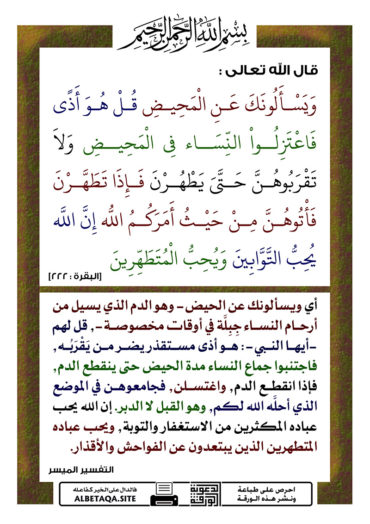 بِسْمِ اللَّهِ الرَّحْمَٰنِ الرَّحِيمِ
قال الله تعالى :
وَيَسْأَلُونَكَ عَنِ الْمَحِيضِ قُلْ هُوَ أَذًى
فَاعْتَزِلُواْ النِّسَاء فِي الْمَحِيضِ وَلاَ
تَقْرَبُوهُنَّ حَتَّىَ يَطْهُرْنَ فَإِذَا تَطَهَّرْنَ
فَأْتُوهُنَّ مِنْ حَيْثُ أَمَرَكُمُ اللّهُ إِنَّ اللّهَ
يُحِبُّ التَّوَّابِينَ وَيُحِبُّ الْمُتَطَهِّرِينَ [البقرة : ٢٢٢]
أي ويسألونك عن الحيض - وهو الدم الذي يسيل من
أرحام النساء جِبِلَّة في أوقات مخصوصة -, قل لهم
-أيها النبي-: هو أذى مستقذر يضر من يَقْرَبُه,
فاجتنبوا جماع النساء مدة الحيض حتى ينقطع الدم,
فإذا انقطع الدم, واغتسلن, فجامعوهن في الموضع
الذي أحلَّه الله لكم, وهو القبل لا الدبر. إن الله يحب
عباده المكثرين من الاستغفار والتوبة, ويحب عباده
المتطهرين الذين يبتعدون عن الفواحش والأقذار.
التفسير الميسر
احرص على طباعة
ونشر هذه الورقة
الورقة الدعوية
فالدال على الخير كفاعله
ALBETAQA.SITE